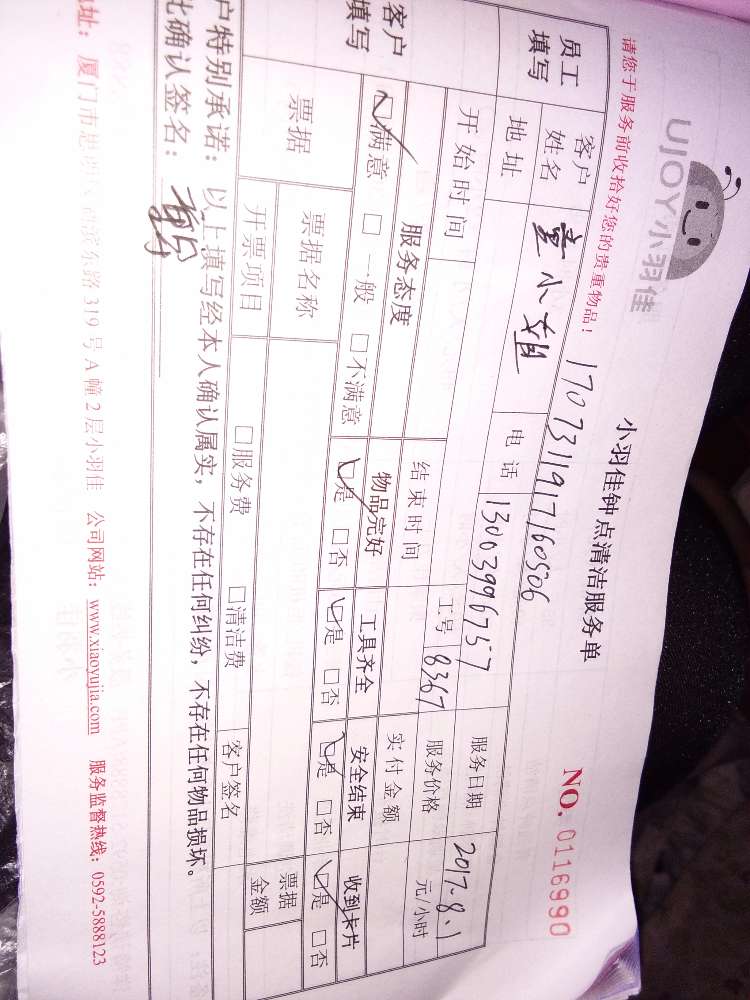 UJOY小羽佳
小羽佳钟点清洁服务单
NO. 0116990
请您于服务前收拾好您的贵重物品！
1707311917160506
员工填写
客户姓名
童小姐
电话
13003996757
服务日期
2017.8.1
地址
工号
8367
服务价格
元/小时
开始时间
结束时间
实付金额
客户填写
服务态度
物品完好
工具齐全
安全结束
收到卡片
☑满意 □一般 □不满意
☑是 □否
☑是 □否
☑是 □否
☑是 □否
票据
票据名称
票据金额
开票项目
□服务费 □清洁费
客户签名
户特别承诺：以上填写经本人确认属实，不存在任何纠纷，不存在任何物品损坏。
比确认签名：
地址：厦门市思 东路319号A幢2层小羽佳 公司网站：www.xiaoyujia.com 服务监督热线：0592-5888123